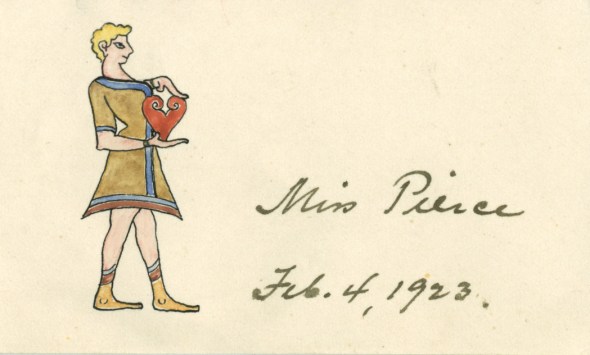 Miss Pierce
Feb. 4, 1923.